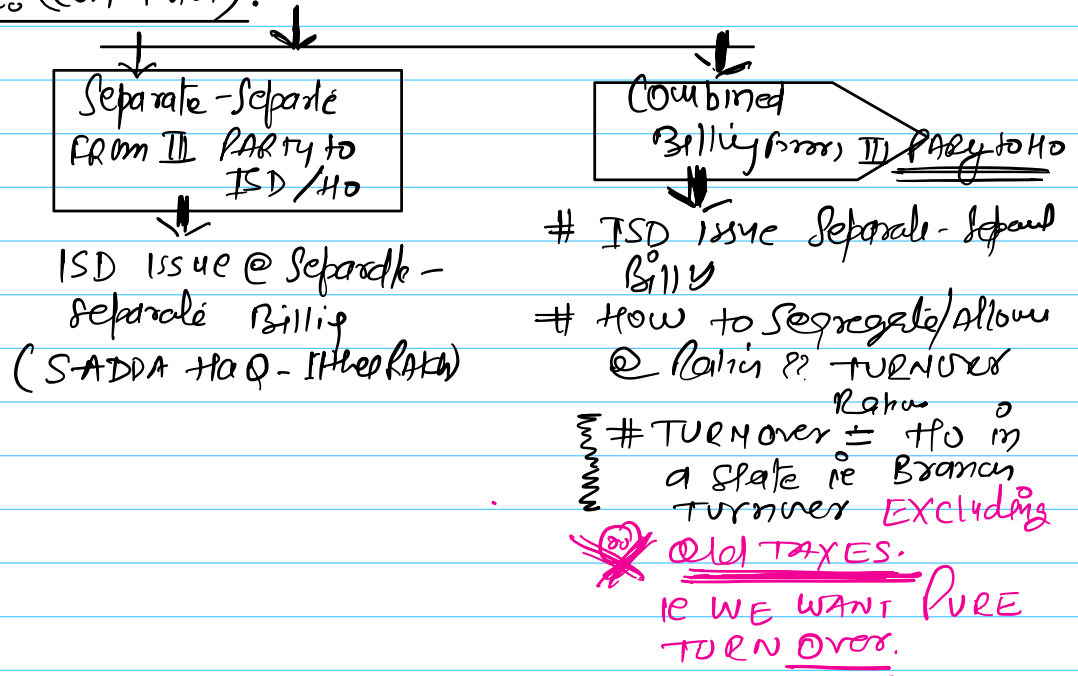 Separate - Separate
FROM III PARTY to
ISD/HO
ISD Issue @ Separate -
Separate Billig
(SADDA HAQ -
Combined
Billig from III PARty to HO
# ISD issue Separate - Separate
Billig
# How to Segregate/Allow
@ Ratio ?? TURNOVER
Ratio
# TURNover = HO in
a State ie Branch
Turnover EXCluding
Old TAXES.
ie WE WANT PURE
TURN Over.